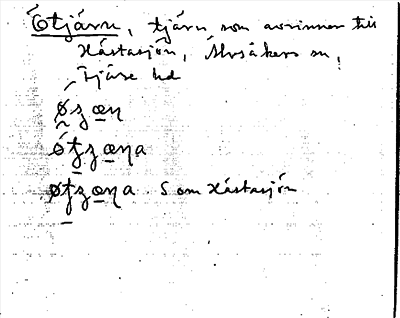 Ótjärn, tjärn som avrinner till
Hästasjön, Norsåkers sn,
Tjäre hd
øʒœn
ótʒœŋa
øtʒœŋa. Som Hästasjön